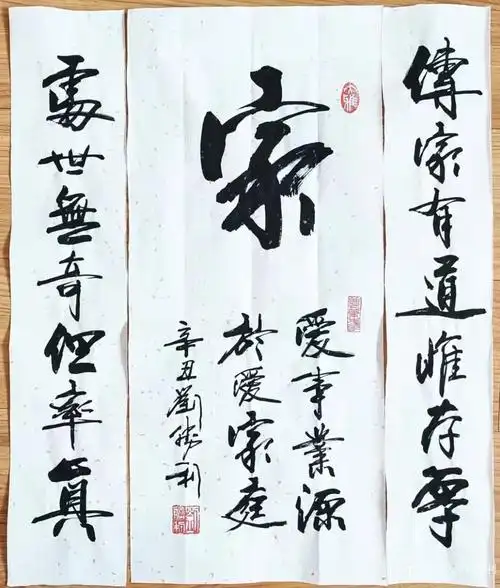 傳家有道惟存厚
家
愛事業源
於愛家庭
辛丑劉勝利
處世無奇但率真